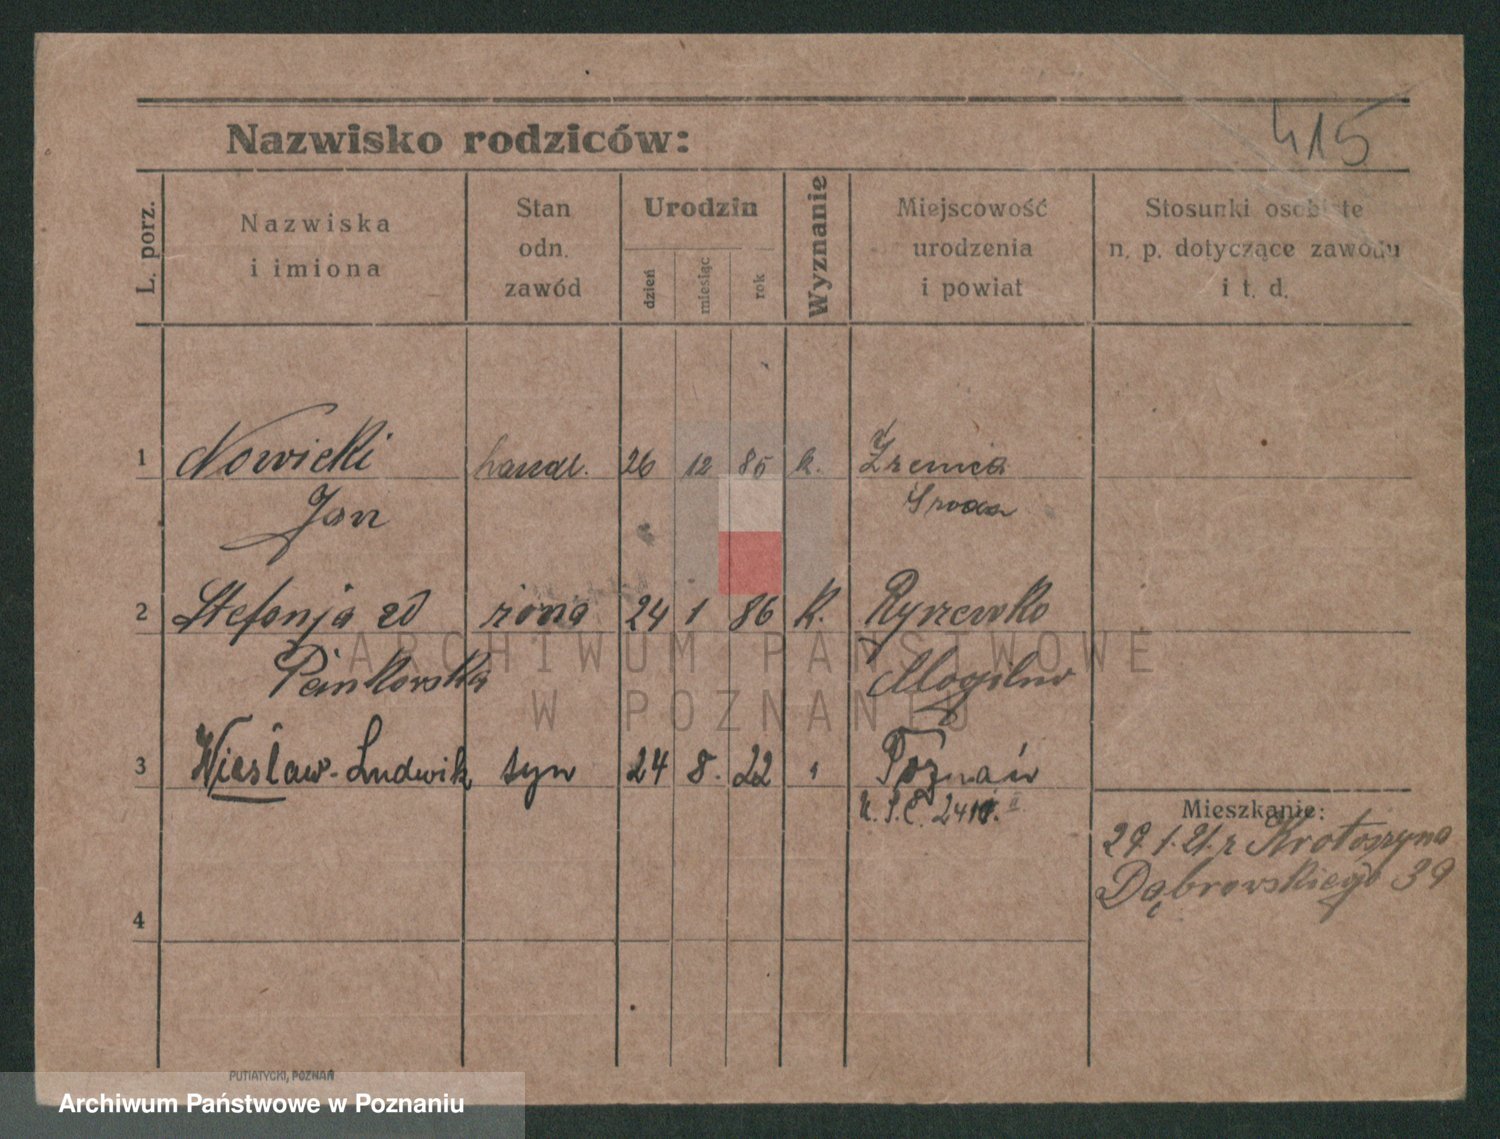 415
Nazwisko rodziców:
L. porz.
Nazwiska
i imiona
Stan
odn.
zawód
Urodzin
dzień
miesiąc
rok
Wyznanie
Miejscowość
urodzenia
i powiat
Stosunki osobiste
n. p. dotyczące zawodu
i t. d.
1 Nowicki handl. 26 12 85 k. Zrenica
Jan Sroda
2 Stefanja zd żona 24 1 86 k. Ryszewko
Pankowska Mogilno
ARCHIWUM PAŃSTWOWE
W POZNANIU
3 Wiesław-Ludwik syn 24 8. 22 Poznań
U.S.C. II
Mieszkanie:
29.1.21. z Krotoszyna
Dąbrowskiego 39
4
PUTIATYCKI, POZNAŃ
Archiwum Państwowe w Poznaniu